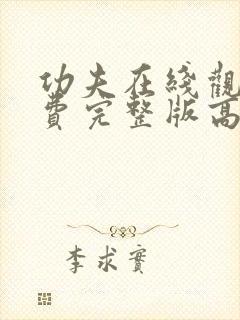 功夫在綫觀
費完整版高
李求實